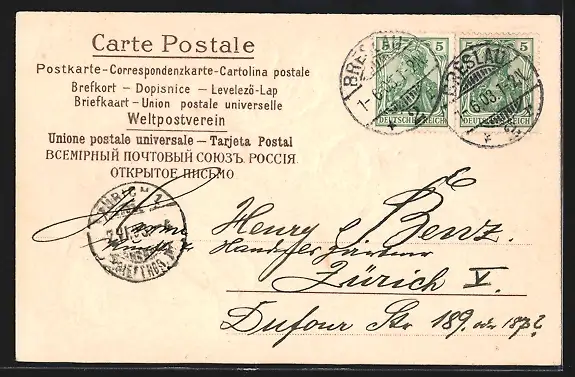 Carte Postale
Postkarte-Correspondenzkarte-Cartolina postale
Brefkort – Dopisnice – Levelező-Lap
Briefkaart-Union postale universelle
Weltpostverein
Unione postale universale – Tarjeta Postal
ВСЕМІРНЫЙ ПОЧТОВЫЙ СОЮЗЪ. РОССІЯ.
ОТКРЫТОЕ ПИСЬМО
5
5
BRESLAU
1-6.03.7-
DEUTSCHES REICH
BRESLAU
6.03.7-
DEUTSCHES REICH
ZÜRICH 1
Henry Benz.
Zürich V.
Dufour Str 189. oder 187?